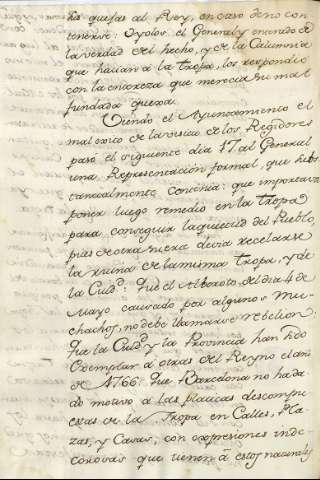 sus quejas al Rey, en caso de no con-
tenerse: Oyolos el General y enterado de
la verdad del hecho, y de la Calumnia
que hacian à la Tropa, los respondiò
con la entereza que merecia su mal
fundada quexa.
Viendo el Ayuntamiento el
mal exito de la visita de los Regidores
pasò el siguiente dia 17 al General
una Representacion formal, que subs-
tancialmente contenia: que importava
poner luego remedio en la Tropa
para conseguir la quietud del Pueblo,
pues de otra suerte devia recelarse
la ruina de la misma Tropa, y de
la Ciudd: Que el Alboroto del dia 4 de
Mayo causado por algunos Mu-
chachos, no debe llamarse rebelion:
Que la Ciudd y la Provincia han sido
Exemplar à otras del Reyno el año
de 1766: Que Barcelona no ha da-
do motivo à las platicas descompu-
estas de la Tropa en Calles, Pla-
zas, y Casas, con expresiones inde-
corosas que tienen à estos naturales